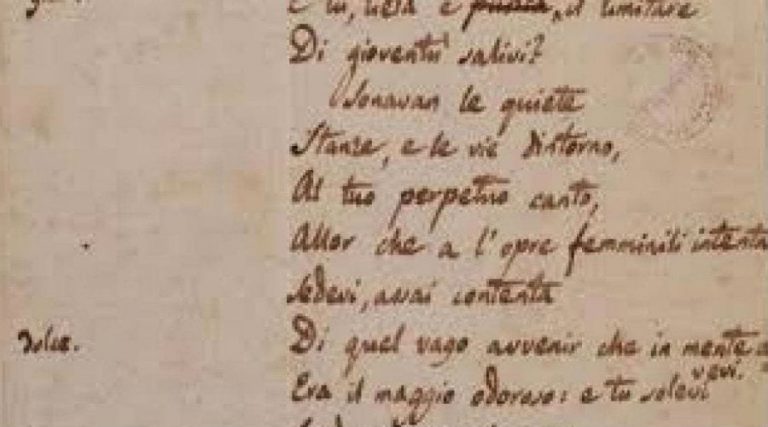 E tu, lieta e il limitare
Di gioventù salivi?
Sonavan le quiete
Stanze, e le vie dintorno,
Al tuo perpetuo canto,
Allor che a l'opre femminili intenta
Sedevi, assai contenta
dolce. Di quel vago avvenir che in mente a
vevi.
Era il maggio odoroso: e tu solevi